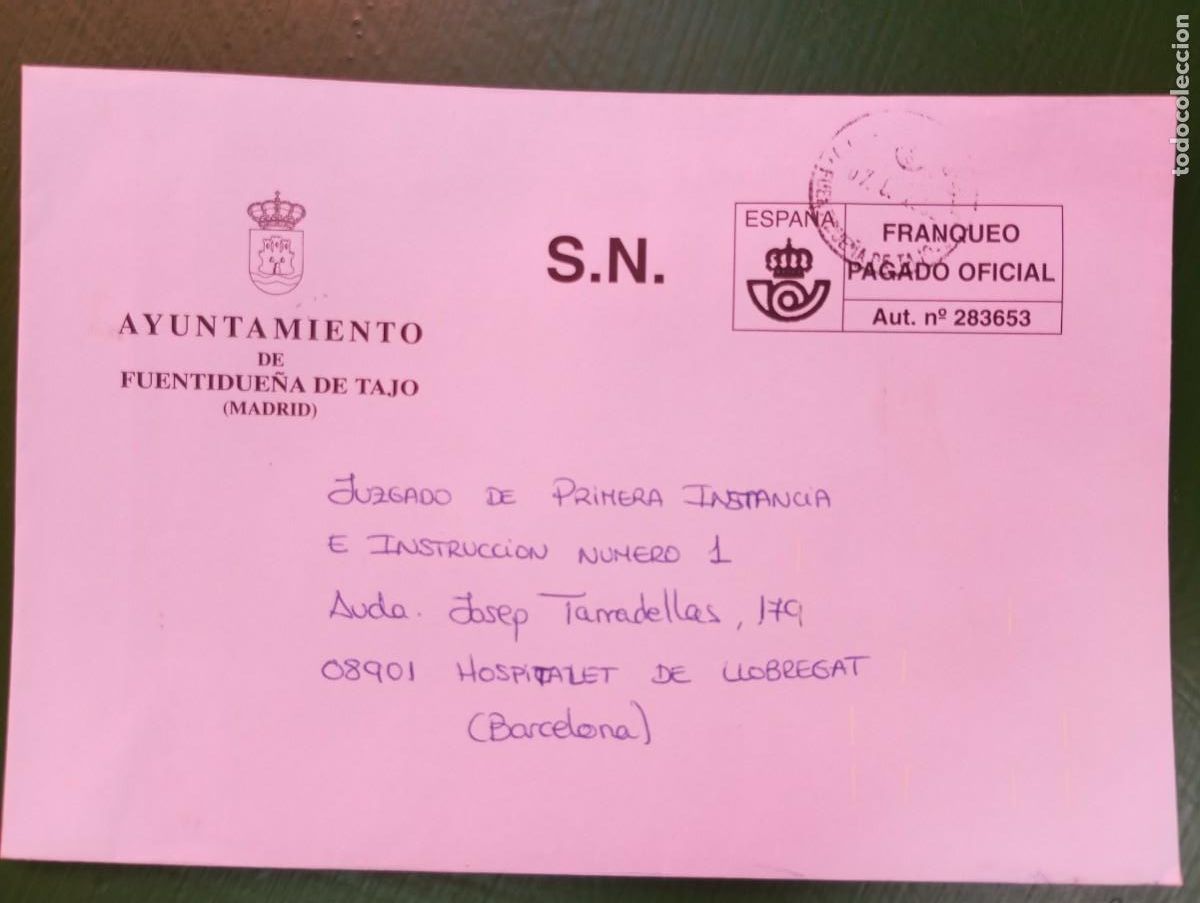 AYUNTAMIENTO
DE
FUENTIDUEÑA DE TAJO
(MADRID)
S.N.
ESPAÑA
FRANQUEO
PAGADO OFICIAL
Aut. nº 283653
FUENTIDUEÑA DE TAJO
JUZGADO DE PRIMERA INSTANCIA
E INSTRUCCION NUMERO 1
Avda. Josep Tarradellas, 179
08901 HOSPITALET DE LLOBREGAT
(Barcelona)
todocoleccion